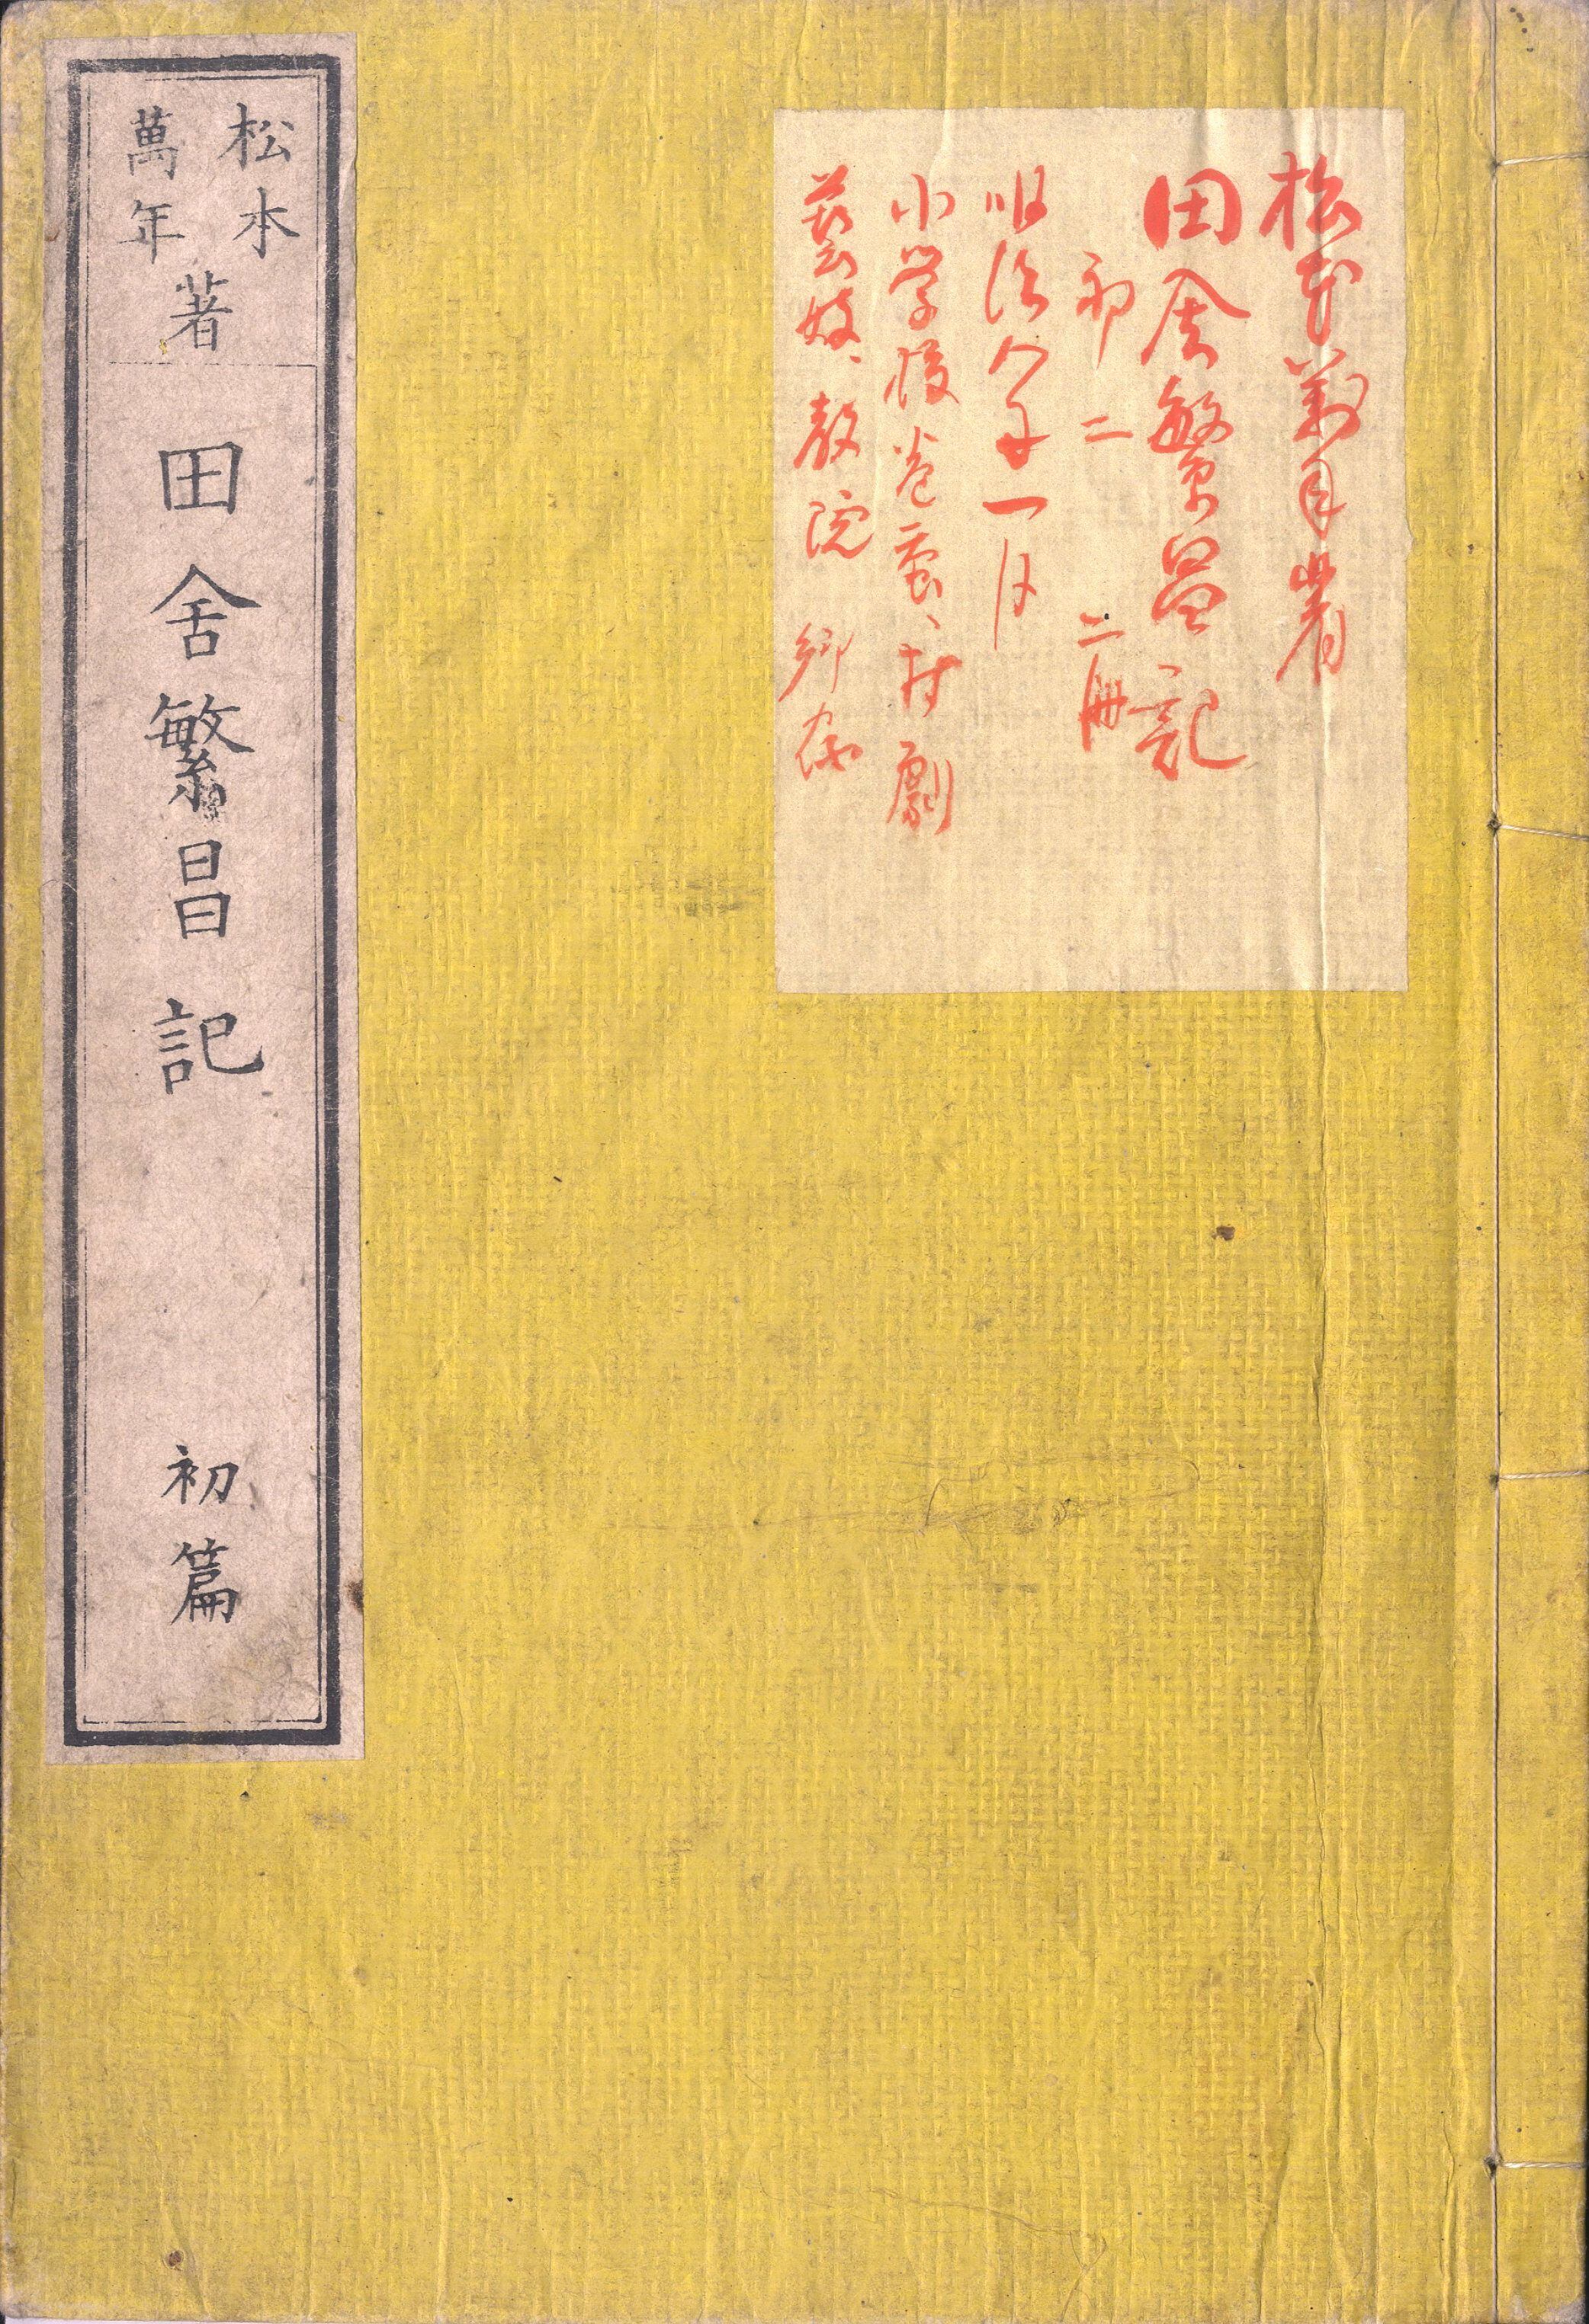 松本萬年著
田舎繁昌記
初 二 二冊
明治八年一月
小学校 蚕、村劇
藝妓、教院
松本
萬年
著
田舍繁昌記
初篇